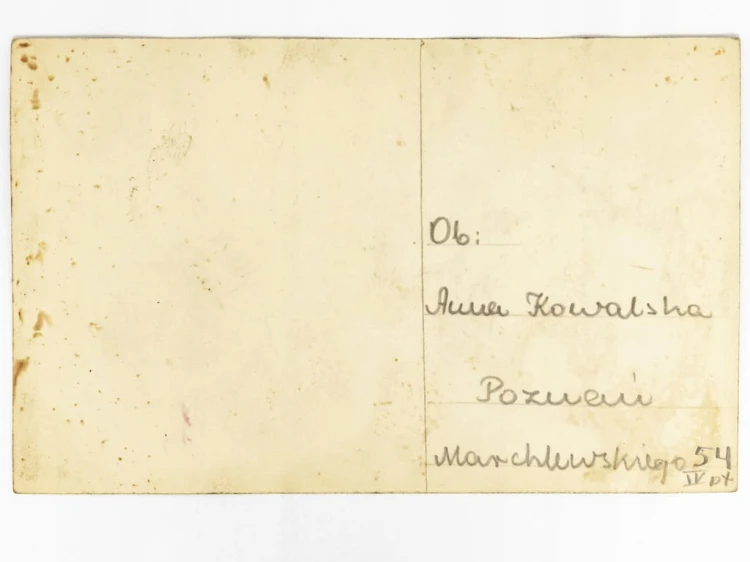 Ob:
Anna Kowalska
Poznań
Marchlewskiego 54
IV pt